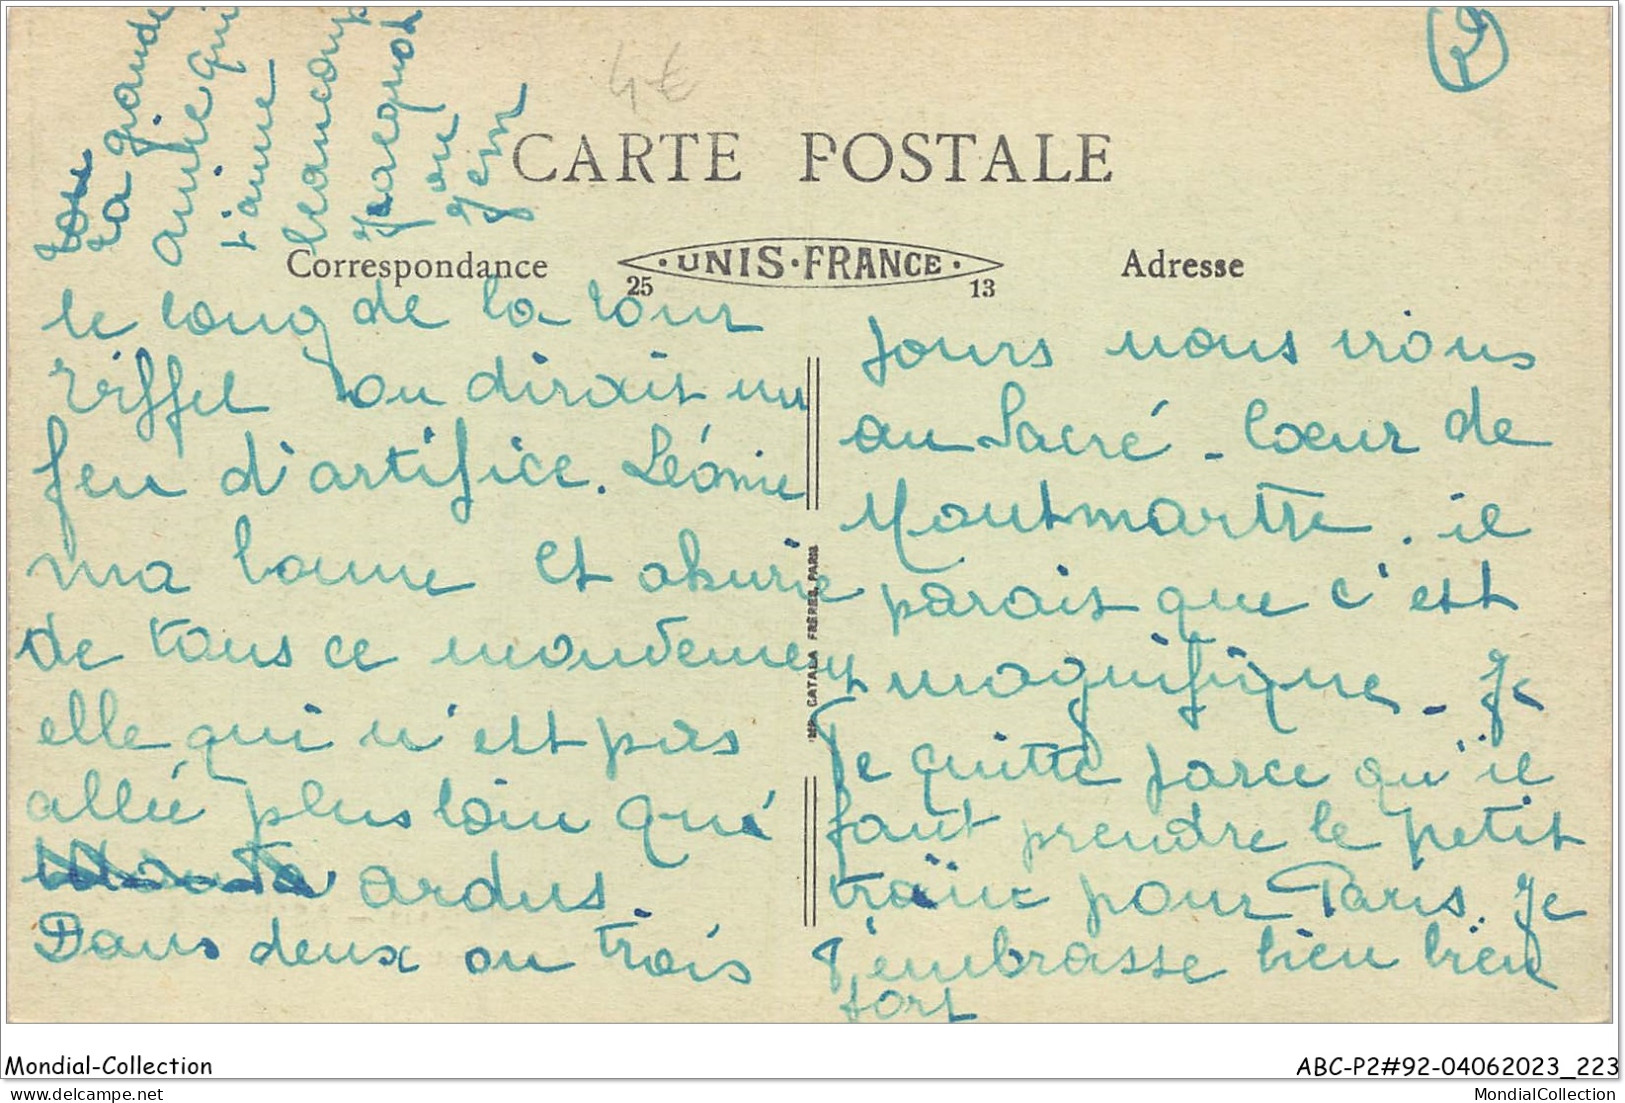 4€
CARTE POSTALE
Correspondance
UNIS-FRANCE
25 13
Adresse
le long de la tour
Eiffel on dirait un
feu d'artifice. Léonie
ma bonne et ahurie
de tous ce mouvement
elle qui n'est pas
allée plus loin que
ardus.
Dans deux ou trois
jours nous irons
au Sacré-Coeur de
Montmartre. il
parait que c'est
magnifique. Je
te quitte parce qu'il
faut prendre le petit
train pour Paris. Je
t'embrasse bien bien
fort
ta grande
amie qui
t'aime
beaucoup
Jacquot
ou
IMP. CATALA FRÈRES, PARIS
Mondial-Collection
ABC-P2#92-04062023_223
delcampe.net
MondialCollection